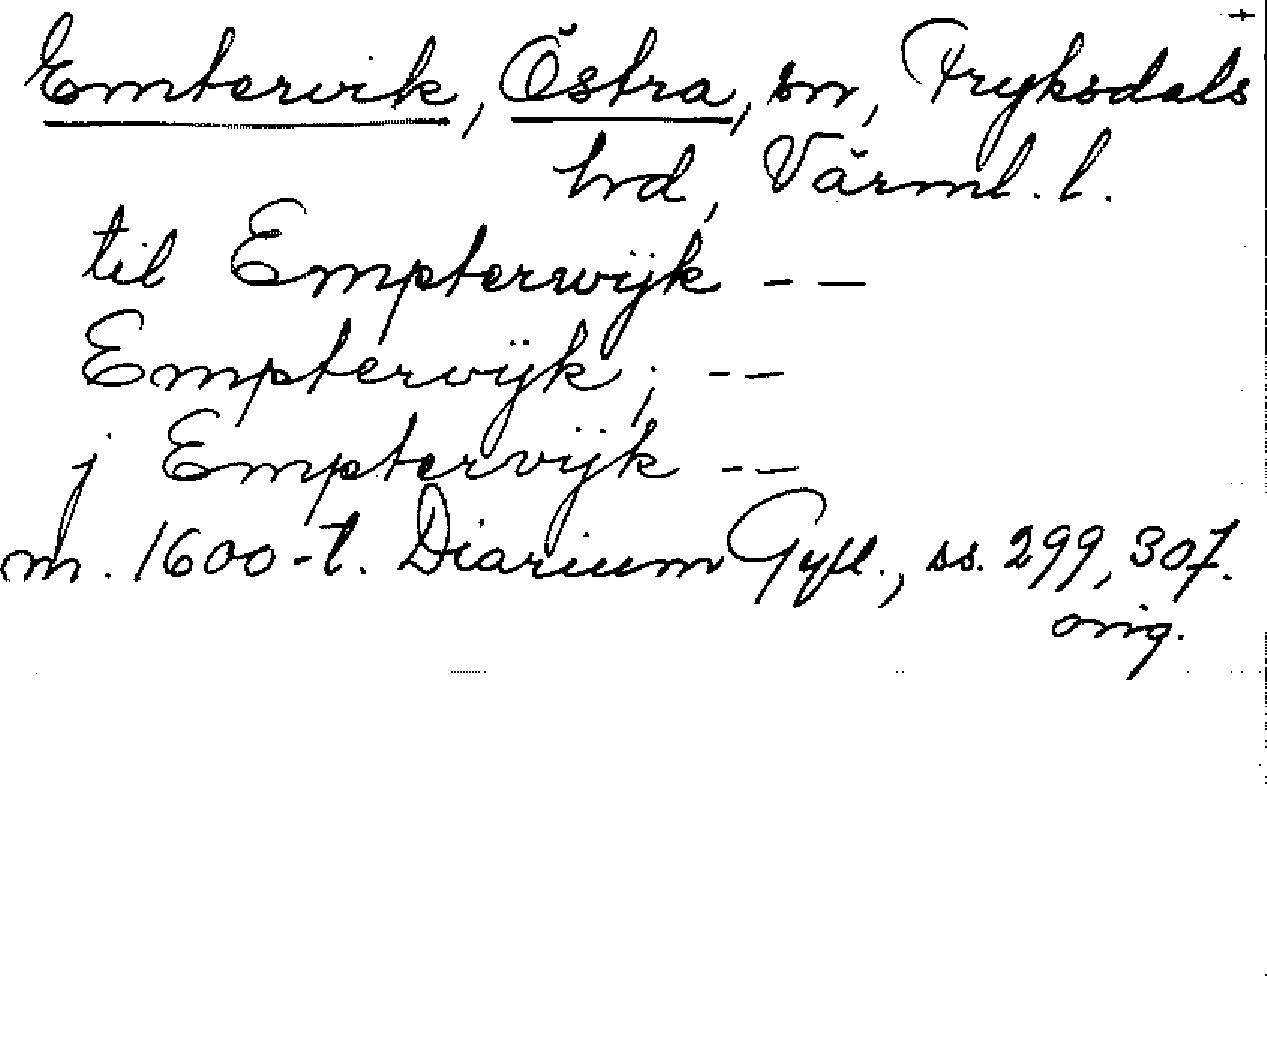 Emtervik, Östra, sn, Fryksdals
hd, Värml. l.
til Empterwijk - -
Empterwijk; - -
j Emptervijk - -
m. 1600-t. Diarium Gyll., ss. 299, 307.
orig.